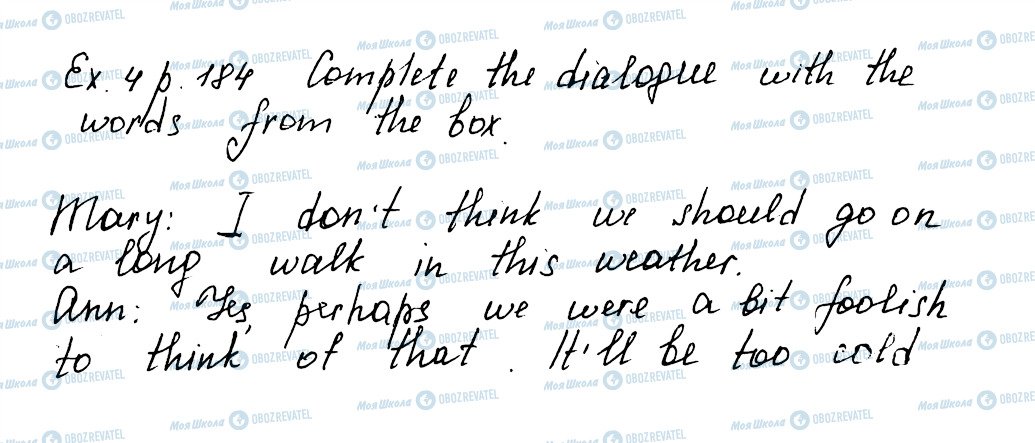 Ex. 4 p. 184 Complete the dialogue with the
words from the box.
Mary: I don't think we should go on
a long walk in this weather.
Ann: Yes, perhaps we were a bit foolish
to think of that. It'll be too cold